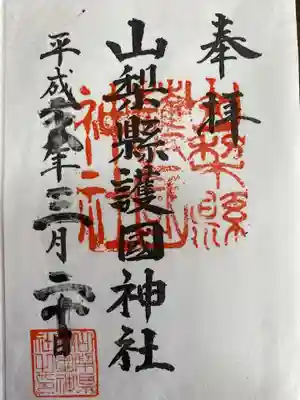 奉拝
山梨縣護國神社
平成 年三月二十日
山梨縣
護國
神社